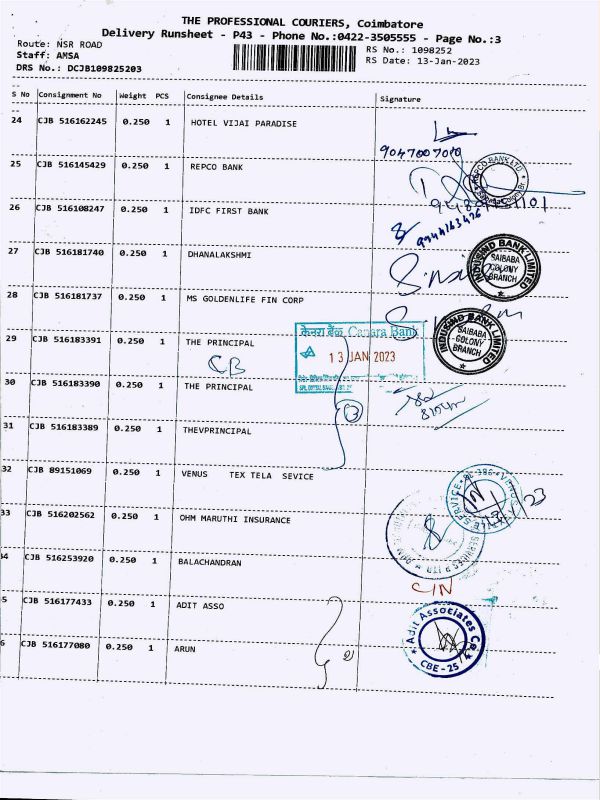 THE PROFESSIONAL COURIERS, Coimbatore
Delivery Runsheet - P43 - Phone No.:0422-3505555 - Page No.:3
Route: NSR ROAD
Staff: AMSA
DRS No.: DCJB109825203
RS No.: 1098252
RS Date: 13-Jan-2023
S No Consignment No Weight PCS Consignee Details Signature
24 CJB 516162245 0.250 1 HOTEL VIJAI PARADISE
9047007070
25 CJB 516145429 0.250 1 REPCO BANK
REPCO BANK LTD
26 CJB 516108247 0.250 1 IDFC FIRST BANK
9944163476
27 CJB 516181740 0.250 1 DHANALAKSHMI
INDUSIND BANK LIMITED
SAIBABA
COLONY
BRANCH
28 CJB 516181737 0.250 1 MS GOLDENLIFE FIN CORP
INDUSIND BANK LIMITED
SAIBABA
COLONY
BRANCH
केनरा बैंक Canara Bank
13 JAN 2023
29 CJB 516183391 0.250 1 THE PRINCIPAL
CB
30 CJB 516183390 0.250 1 THE PRINCIPAL
3
31 CJB 516183389 0.250 1 THEVPRINCIPAL
32 CJB 89151069 0.250 1 VENUS TEX TELA SEVICE
33 CJB 516202562 0.250 1 OHM MARUTHI INSURANCE
34 CJB 516253920 0.250 1 BALACHANDRAN
5 CJB 516177433 0.250 1 ADIT ASSO
Adit Associates
CBE - 25
6 CJB 516177080 0.250 1 ARUN